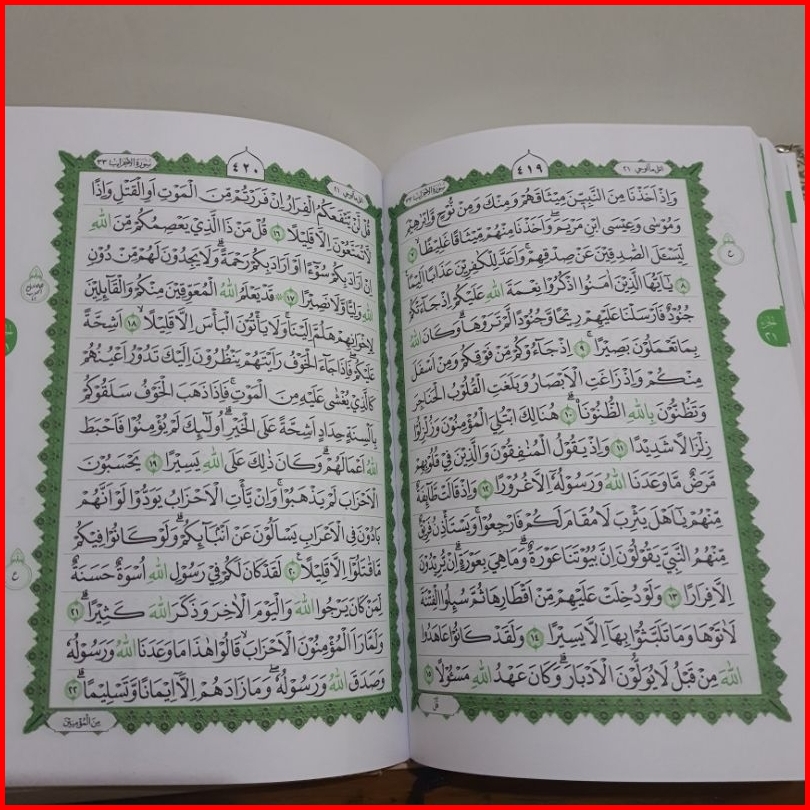 سورة الاحزاب ٣٣
٤١٩
اتل ما اوحي ٢١
وَاِذْ اَخَذْنَا مِنَ النَّبِيّٖنَ مِيْثَاقَهُمْ وَمِنْكَ وَمِنْ نُوْحٍ وَّاِبْرٰهِيْمَ
وَمُوْسٰى وَعِيْسَى ابْنِ مَرْيَمَ ۖوَاَخَذْنَا مِنْهُمْ مِّيْثَاقًا غَلِيْظًا ۙ ٧
لِّيَسْـَٔلَ الصّٰدِقِيْنَ عَنْ صِدْقِهِمْ ۚ وَاَعَدَّ لِلْكٰفِرِيْنَ عَذَابًا اَلِيْمًا
٨ يٰٓاَيُّهَا الَّذِيْنَ اٰمَنُوا اذْكُرُوْا نِعْمَةَ اللّٰهِ عَلَيْكُمْ اِذْ جَاۤءَتْكُمْ
جُنُوْدٌ فَاَرْسَلْنَا عَلَيْهِمْ رِيْحًا وَّجُنُوْدًا لَّمْ تَرَوْهَا ۗوَكَانَ اللّٰهُ
بِمَا تَعْمَلُوْنَ بَصِيْرًا ۚ ٩ اِذْ جَاۤءُوْكُمْ مِّنْ فَوْقِكُمْ وَمِنْ اَسْفَلَ
مِنْكُمْ وَاِذْ زَاغَتِ الْاَبْصَارُ وَبَلَغَتِ الْقُلُوْبُ الْحَنَاجِرَ
وَتَظُنُّوْنَ بِاللّٰهِ الظُّنُوْنَا ۗ ١٠ هُنَالِكَ ابْتُلِيَ الْمُؤْمِنُوْنَ وَزُلْزِلُوْا
زِلْزَالًا شَدِيْدًا ١١ وَاِذْ يَقُوْلُ الْمُنٰفِقُوْنَ وَالَّذِيْنَ فِيْ قُلُوْبِهِمْ
مَّرَضٌ مَّا وَعَدَنَا اللّٰهُ وَرَسُوْلُهٗٓ اِلَّا غُرُوْرًا ١٢ وَاِذْ قَالَتْ طَّاۤىِٕفَةٌ
مِّنْهُمْ يٰٓاَهْلَ يَثْرِبَ لَا مُقَامَ لَكُمْ فَارْجِعُوْا ۚوَيَسْتَأْذِنُ فَرِيْقٌ
مِّنْهُمُ النَّبِيَّ يَقُوْلُوْنَ اِنَّ بُيُوْتَنَا عَوْرَةٌ ۗوَمَا هِيَ بِعَوْرَةٍ ۗاِنْ يُّرِيْدُوْنَ
اِلَّا فِرَارًا ١٣ وَلَوْ دُخِلَتْ عَلَيْهِمْ مِّنْ اَقْطَارِهَا ثُمَّ سُىِٕلُوا الْفِتْنَةَ
لَاٰتَوْهَا وَمَا تَلَبَّثُوْا بِهَآ اِلَّا يَسِيْرًا ١٤ وَلَقَدْ كَانُوْا عَاهَدُوا
اللّٰهَ مِنْ قَبْلُ لَا يُوَلُّوْنَ الْاَدْبَارَ ۗوَكَانَ عَهْدُ اللّٰهِ مَسْـُٔوْلًا ١٥
قُلْ
ع
سورة الاحزاب ٣٣
٤٢٠
اتل ما اوحي ٢١
قُلْ لَّنْ يَّنْفَعَكُمُ الْفِرَارُ اِنْ فَرَرْتُمْ مِّنَ الْمَوْتِ اَوِ الْقَتْلِ وَاِذًا
لَّا تُمَتَّعُوْنَ اِلَّا قَلِيْلًا ١٦ قُلْ مَنْ ذَا الَّذِيْ يَعْصِمُكُمْ مِّنَ اللّٰهِ
اِنْ اَرَادَ بِكُمْ سُوْۤءًا اَوْ اَرَادَ بِكُمْ رَحْمَةً ۗوَلَا يَجِدُوْنَ لَهُمْ مِّنْ دُوْنِ
اللّٰهِ وَلِيًّا وَّلَا نَصِيْرًا ١٧ ۞ قَدْ يَعْلَمُ اللّٰهُ الْمُعَوِّقِيْنَ مِنْكُمْ وَالْقَاۤىِٕلِيْنَ
لِاِخْوَانِهِمْ هَلُمَّ اِلَيْنَا ۚوَلَا يَأْتُوْنَ الْبَأْسَ اِلَّا قَلِيْلًا ۙ ١٨ اَشِحَّةً
عَلَيْكُمْ ۖ فَاِذَا جَاۤءَ الْخَوْفُ رَاَيْتَهُمْ يَنْظُرُوْنَ اِلَيْكَ تَدُوْرُ اَعْيُنُهُمْ
كَالَّذِيْ يُغْشٰى عَلَيْهِ مِنَ الْمَوْتِ ۚ فَاِذَا ذَهَبَ الْخَوْفُ سَلَقُوْكُمْ
بِاَلْسِنَةٍ حِدَادٍ اَشِحَّةً عَلَى الْخَيْرِ ۗ اُولٰۤىِٕكَ لَمْ يُؤْمِنُوْا فَاَحْبَطَ
اللّٰهُ اَعْمَالَهُمْ ۗوَكَانَ ذٰلِكَ عَلَى اللّٰهِ يَسِيْرًا ١٩ يَحْسَبُوْنَ
الْاَحْزَابَ لَمْ يَذْهَبُوْا ۚوَاِنْ يَّأْتِ الْاَحْزَابُ يَوَدُّوْا لَوْ اَنَّهُمْ
بَادُوْنَ فِى الْاَعْرَابِ يَسْاَلُوْنَ عَنْ اَنْۢبَاۤىِٕكُمْ ۗوَلَوْ كَانُوْا فِيْكُمْ
مَّا قٰتَلُوْٓا اِلَّا قَلِيْلًا ۚ ٢٠ لَقَدْ كَانَ لَكُمْ فِيْ رَسُوْلِ اللّٰهِ اُسْوَةٌ حَسَنَةٌ
لِّمَنْ كَانَ يَرْجُوا اللّٰهَ وَالْيَوْمَ الْاٰخِرَ وَذَكَرَ اللّٰهَ كَثِيْرًا ۗ ٢١
وَلَمَّا رَاَ الْمُؤْمِنُوْنَ الْاَحْزَابَ ۙقَالُوْا هٰذَا مَا وَعَدَنَا اللّٰهُ وَرَسُوْلُهٗ
وَصَدَقَ اللّٰهُ وَرَسُوْلُهٗ ۖوَمَا زَادَهُمْ اِلَّآ اِيْمَانًا وَّتَسْلِيْمًا ۗ ٢٢
مِنَ الْمُؤْمِنِيْنَ
ع